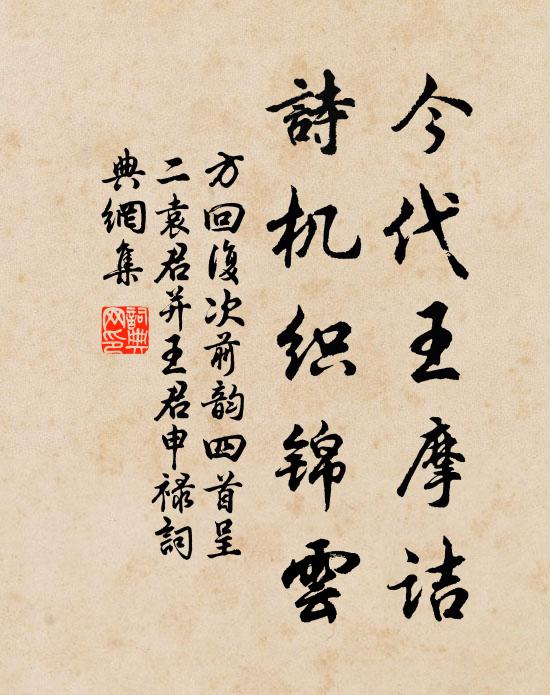 今代王摩诘
詩机织锦雲
方回復次前韵四首呈
二袁君并王君申禄詞
典網集
詞典网印